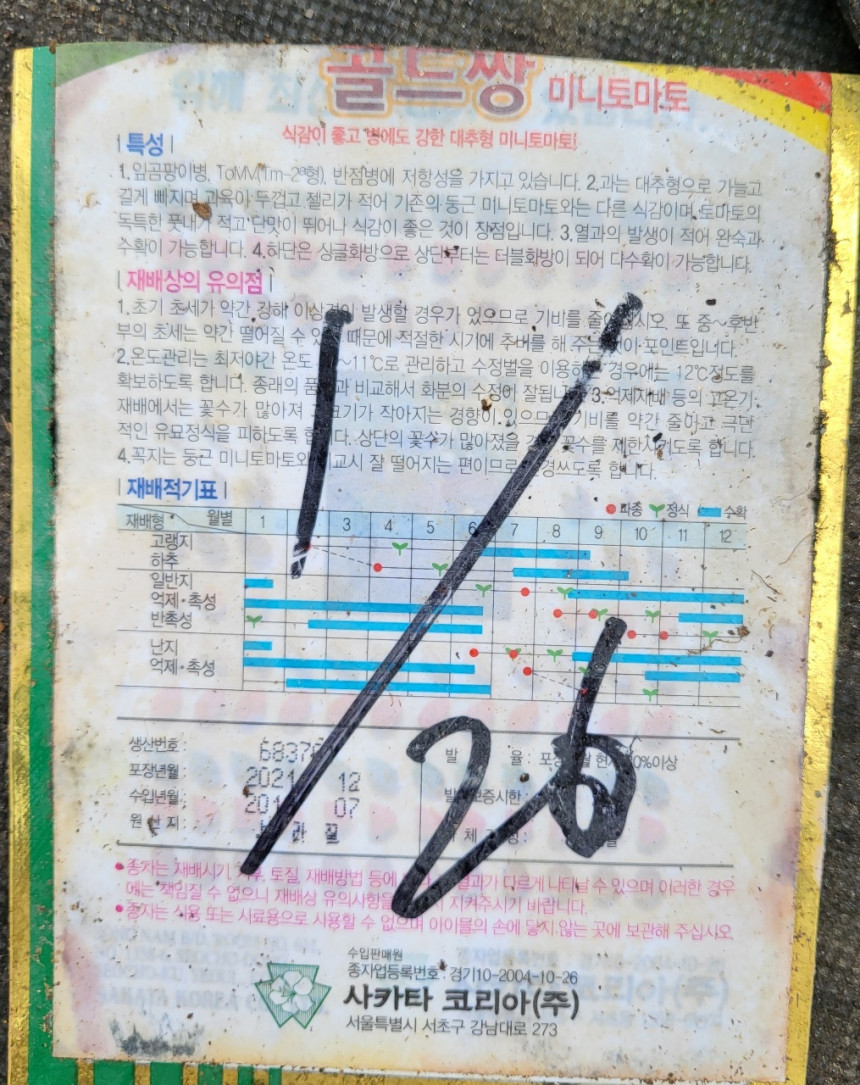 골드쌍 미니토마토
식감이 좋고 병에도 강한 대추형 미니토마토!
특성
1. 잎곰팡이병, ToMV(Tm-2ª형), 반점병에 저항성을 가지고 있습니다. 2.과는 대추형으로 가늘고
길게 빠지며 과육이 두껍고 젤리가 적어 기존의 둥근 미니토마토와는 다른 식감이며, 토마토의
독특한 풋내가 적고 단맛이 뛰어나 식감이 좋은 것이 장점입니다. 3.열과의 발생이 적어 완숙과
수확이 가능합니다. 4.하단은 싱글화방으로 상단부터는 더블화방이 되어 다수확이 가능합니다.
재배상의 유의점
1.초기 초세가 약간 강해 발생할 경우가 있으므로 기비를 또 중~후반
부의 초세는 약간 떨어질 수 때문에 적절한 시기에 추비를 해 포인트입니다.
2.온도관리는 최저야간 온도 ~11℃로 관리하고 수정벌을 경우에는 12℃정도를
확보하도록 합니다. 종래의 비교해서 화분의 수정이 3.억제재배 등의 고온기
재배에서는 꽃수가 많아져 작아지는 경향이 기비를 약간 줄이고 극단
적인 유묘정식을 피하도록 상단의 꽃수가 많아졌을 꽃수를 제한시키도록 합니다.
4.꼭지는 둥근 잘 떨어지는 합니다.
재배적기표
파종 정식 수확
재배형 월별 1 3 4 5 6 7 8 9 10 11 12
고랭지
하추
일반지
억제·촉성
반촉성
난지
억제·촉성
1/26
생산번호 :
포장년월 : 2021 12
수입년월 : 07
원산지 :
종자는 재배시기 토질, 재배방법 등에 결과가 다르게 나타날 수 있으며 이러한 경우
에는 책임질 수 없으니 재배상 유의사항을 지켜주시기 바랍니다.
종자는 식용 또는 사료용으로 사용할 수 없으며 아이들의 손에 닿지 않는 곳에 보관해 주십시오
수입판매원
종자업등록번호 : 경기10-2004-10-26
사카타 코리아(주)
서울특별시 서초구 강남대로 273